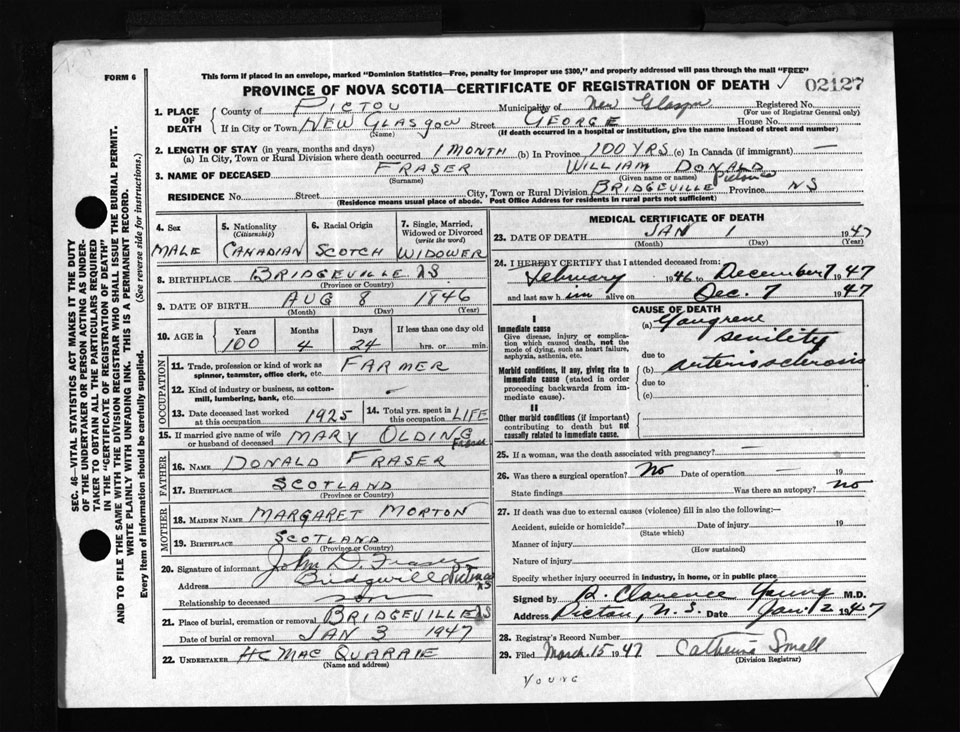 FORM 6
This form if placed in an envelope, marked "Dominion Statistics—Free, penalty for improper use $300," and properly addressed will pass through the mail "FREE"
PROVINCE OF NOVA SCOTIA—CERTIFICATE OF REGISTRATION OF DEATH 02127
SEC. 46—VITAL STATISTICS ACT MAKES IT THE DUTY
OF THE UNDERTAKER OR PERSON ACTING AS UNDER-
TAKER TO OBTAIN ALL THE PARTICULARS REQUIRED
IN THE "CERTIFICATE OF REGISTRATION OF DEATH"
AND TO FILE THE SAME WITH THE DIVISION REGISTRAR WHO SHALL ISSUE THE BURIAL PERMIT.
WRITE PLAINLY WITH UNFADING INK. THIS IS A PERMANENT RECORD.
Every item of information should be carefully supplied. (See reverse side for instructions.)
1. PLACE OF DEATH
County of PICTOU Municipality of New Glasgow Registered No.
(For use of Registrar General only)
If in City or Town NEW GLASGOW Street GEORGE House No.
(Name) (If death occurred in a hospital or institution, give the name instead of street and number)
2. LENGTH OF STAY (in years, months and days)
(a) In City, Town or Rural Division where death occurred 1 MONTH (b) In Province 100 YRS (c) In Canada (if immigrant) —
3. NAME OF DECEASED FRASER WILLIAM DONALD
(Surname) (Given name or names)
RESIDENCE No. Street City, Town or Rural Division BRIDGEVILLE Pictou Province NS
(Residence means usual place of abode. Post Office Address for residents in rural parts not sufficient)
4. Sex 5. Nationality (Citizenship) 6. Racial Origin 7. Single, Married, Widowed or Divorced (write the word)
MALE CANADIAN SCOTCH WIDOWER
8. BIRTHPLACE BRIDGEVILLE NS
(Province or Country)
9. DATE OF BIRTH AUG 8 1846
(Month) (Day) (Year)
10. AGE in Years Months Days If less than one day old
100 4 24 hrs. or min.
OCCUPATION
11. Trade, profession or kind of work as spinner, teamster, office clerk, etc. FARMER
12. Kind of industry or business, as cotton-mill, lumbering, bank, etc. –
13. Date deceased last worked at this occupation 1925 14. Total yrs. spent in this occupation LIFE
15. If married give name of wife or husband of deceased MARY OLDING Fraser
FATHER
16. NAME DONALD FRASER
17. BIRTHPLACE SCOTLAND
(Province or Country)
MOTHER
18. MAIDEN NAME MARGARET MORTON
19. BIRTHPLACE SCOTLAND
(Province or Country)
20. Signature of informant John D. Fraser
Address Bridgeville Pictou Co NS
Relationship to deceased Son
21. Place of burial, cremation or removal BRIDGEVILLE NS
Date of burial or removal JAN 3 1947
22. UNDERTAKER HC MAC QUARRIE
(Name and address)
MEDICAL CERTIFICATE OF DEATH
23. DATE OF DEATH JAN 1 1947
(Month) (Day) (Year)
24. I HEREBY CERTIFY that I attended deceased from:
February 1946 to December 7 1947
and last saw him alive on Dec. 7 1947
CAUSE OF DEATH
I
Immediate cause
Give disease, injury or complication which caused death, not the mode of dying, such as heart failure, asphyxia, asthenia, etc.
(a) Gangrene
senility
due to
Morbid conditions, if any, giving rise to immediate cause (stated in order proceeding backwards from immediate cause).
(b) arteriosclerosis
due to
(c)
II
Other morbid conditions (if important) contributing to death but not causally related to immediate cause.
25. If a woman, was the death associated with pregnancy? —
26. Was there a surgical operation? No Date of operation — 19
State findings Was there an autopsy? no
27. If death was due to external causes (violence) fill in also the following:—
Accident, suicide or homicide? Date of injury 19
(State which)
Manner of injury
(How sustained)
Nature of injury
Specify whether injury occurred in industry, in home, or in public place
Signed by R. Clarence Young M.D.
Address Pictou, N.S. Date Jan. 2 1947
28. Registrar's Record Number
29. Filed March 15 1947 Catherine Small
(Division Registrar)
YOUNG